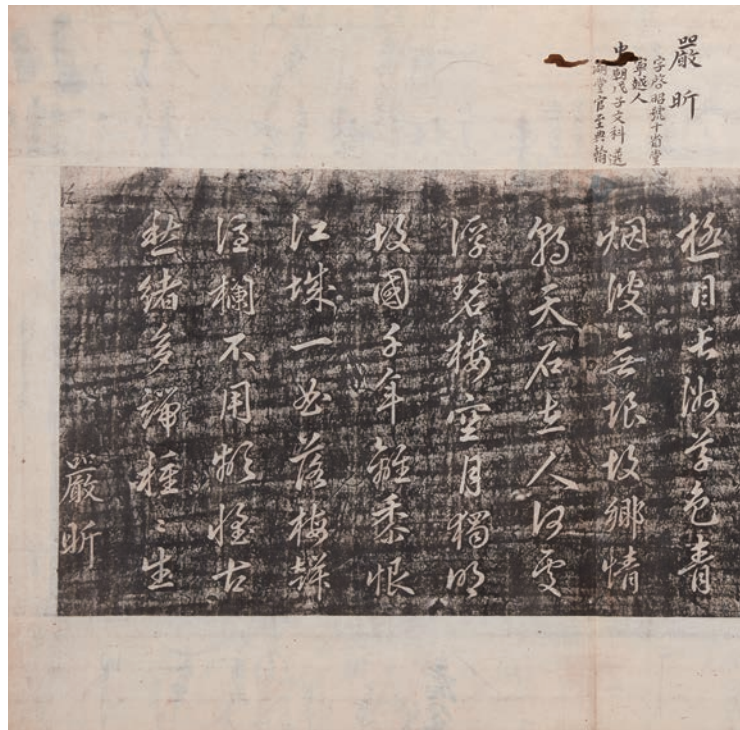 嚴昕
字啓昭號十省堂
寧越人
中朝戊子文科選
湖堂官至典翰
極目長洲草色青
烟波無限故鄉情
朝天石在人何處
浮碧樓空月獨明
故國千年離黍恨
江城一曲落梅聲
憑欄不用頻懷古
愁緒多端種〻生
嚴昕